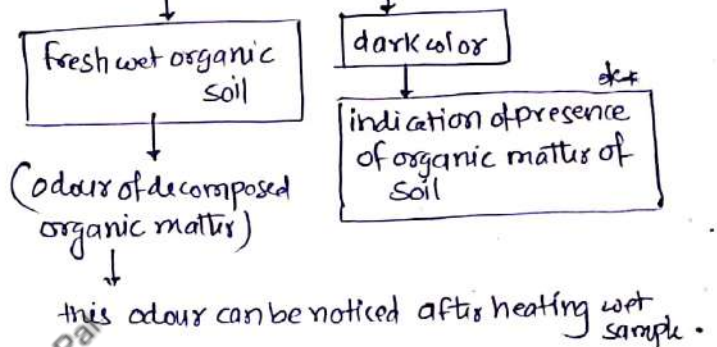 fresh wet organic
soil
(odour of decomposed
organic matter)
this odour can be noticed after heating wet
sample.
dark color
indication of presence
of organic matter of
soil